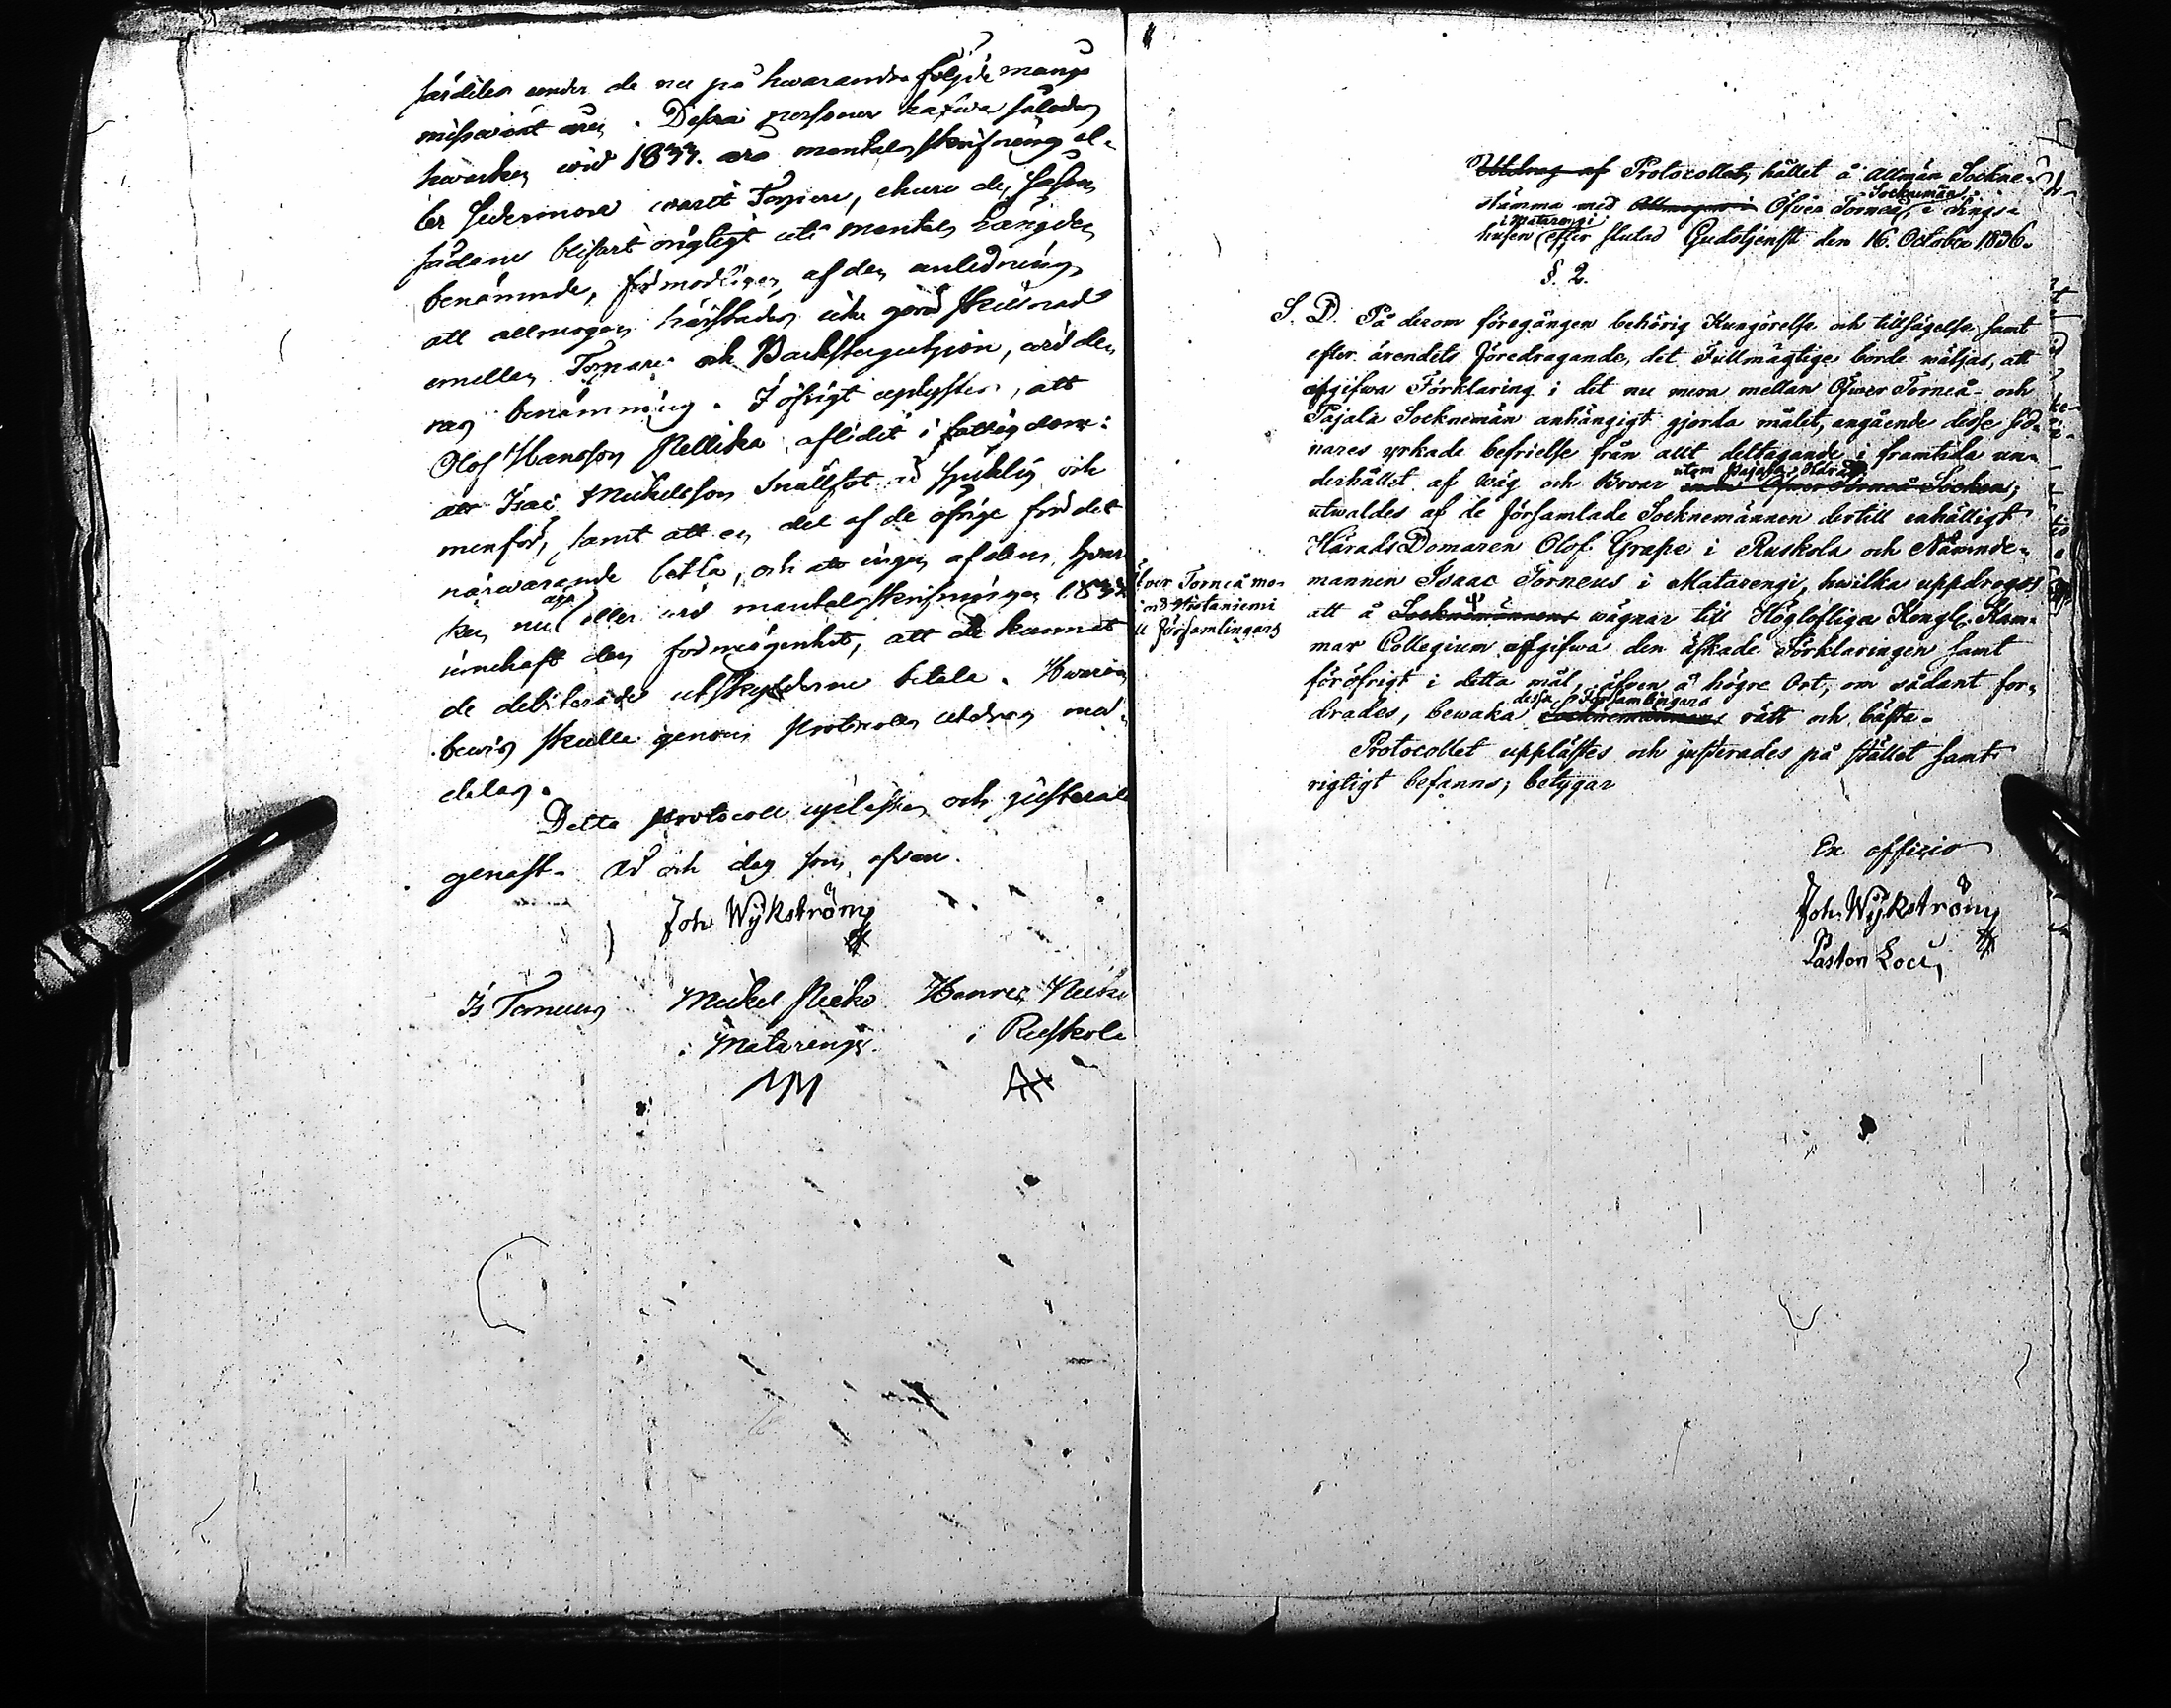 särdeles under de nu på hwarandra följde många
missväxt åren. Dessa personer hafwa således
hwarken wid 1833. års mantalsskrifning el-
ler sedermera warit Torpare, ehuru de, såsom
sådane blifwit origtigt uti mantals Längden
benämnde, förmodligen, af den anledning
att allmogen härstädes icke göra skillnad
emellan Torpare och Backstuguhjon, wid de-
ras benämning. I öfrigt upplystes, att
Olof Hansson Pellika aflidit i fattigdom:
att Isac Mickelsson Snällfot är sjuklig och
menför, samt att en del af de öfrige för det
närwarande betla, och att ingen af dem, hwar-
ken nu äga eller wid mantalsskrifningen 1833
innehaft den förmögenhet, att de kunnat
de debiterade utskylderne betala. Hwarom
bewis skulle genom Protocolls utdrag med-
delas.
Detta Protocoll uplästes och justerades
genast. År och dag som ofwan.
Joh Wijkström
Is Torneus Mickel Niska Hannes Niska
i Matarengi i Ruskola
Utdrag af Protocollet, hållet å allmän Sockne-
stämma med Allmogen i Socknemän Öfver Torneå, i Tings-
husen i Matarengi efter slutad Gudstjenst den 16. October 1836.
§. 2.
S. D. På derom föregången behörig Kungörelse och tillsägelse samt
efter ärendets föredragande, det Fullmägtige borde wäljas, att
afgifwa Förklaring i det nu mera mellan Öfwer Torneå- och
Pajala Socknemän anhängigt gjorda målet, angående desse sid-
nares yrkade befrielse från allt deltagande i framtida un-
derhållet af wäg och Broar utom Pajala Område Öfwer Torneå Socken;
utwaldes af de församlade Socknemännen dertill enhälligt
HäradsDomaren Olof Grape i Ruskola och Nämnde-
mannen Isaac Torneus i Matarengi, hwilka uppdrogos
Öfver Torneå mo-
med Hietaniemi
Församlingars
att å Socknemännens wägnar till Höglofliga Kongl. Kam-
mar Collegium affgifwa den äskade Förklaringen samt
föröfrigt i detta mål, äfven å högre Ort, om sådant for-
drades, bewaka dessa Församlingars Socknemännens rätt och bästa.
Protocollet upplästes och justerades på stället samt
rigtigt befanns; betygar
Ex officio
Joh. Wijkström
Pastor Loci